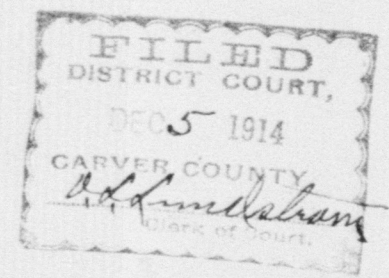 FILED
DISTRICT COURT,
DEC 5 1914
CARVER COUNTY
O. L. Lundstrom
Clerk of Court.